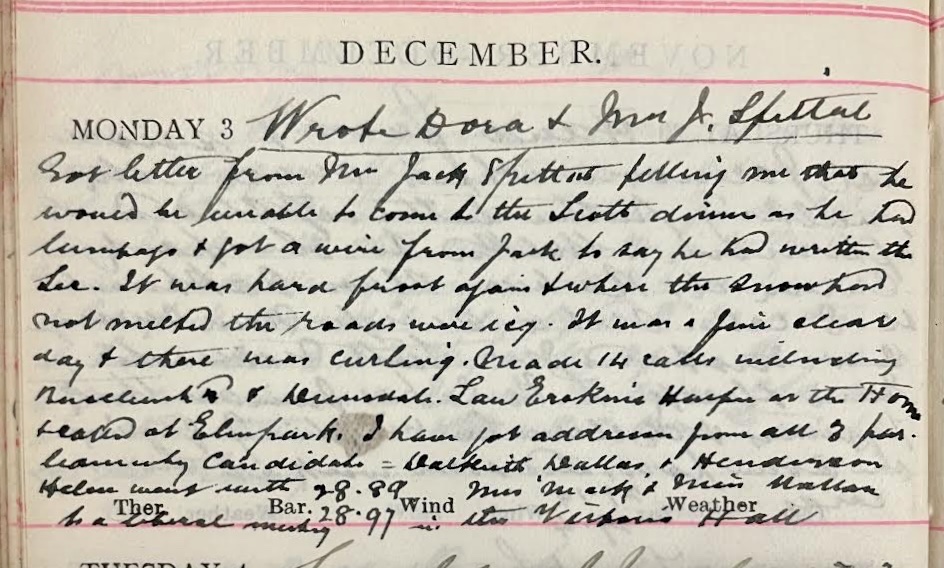 DECEMBER.
MONDAY 3 Wrote Dora & Mrs J. Spittal
Got letter from Mrs Jack Spittal telling me that he
would be unable to come to the Scott dinner as he had
lumbago & got a wire from Jack to say he had written the
Sec. It was hard frost again & where the snow had
not melted the roads were icy. It was a fine clear
day & there was curling. Made 14 calls including
Saw Erskine Harper at the Home
& called at Elmpark. I have got addresses from all 3 par-
liamentary candidates = Dalkeith Dallas & Henderson
Helen went with 28.89 Mrs Mack & Miss
Ther. Bar. 28.97 Wind Weather
to a liberal meeting in the Victoria Hall